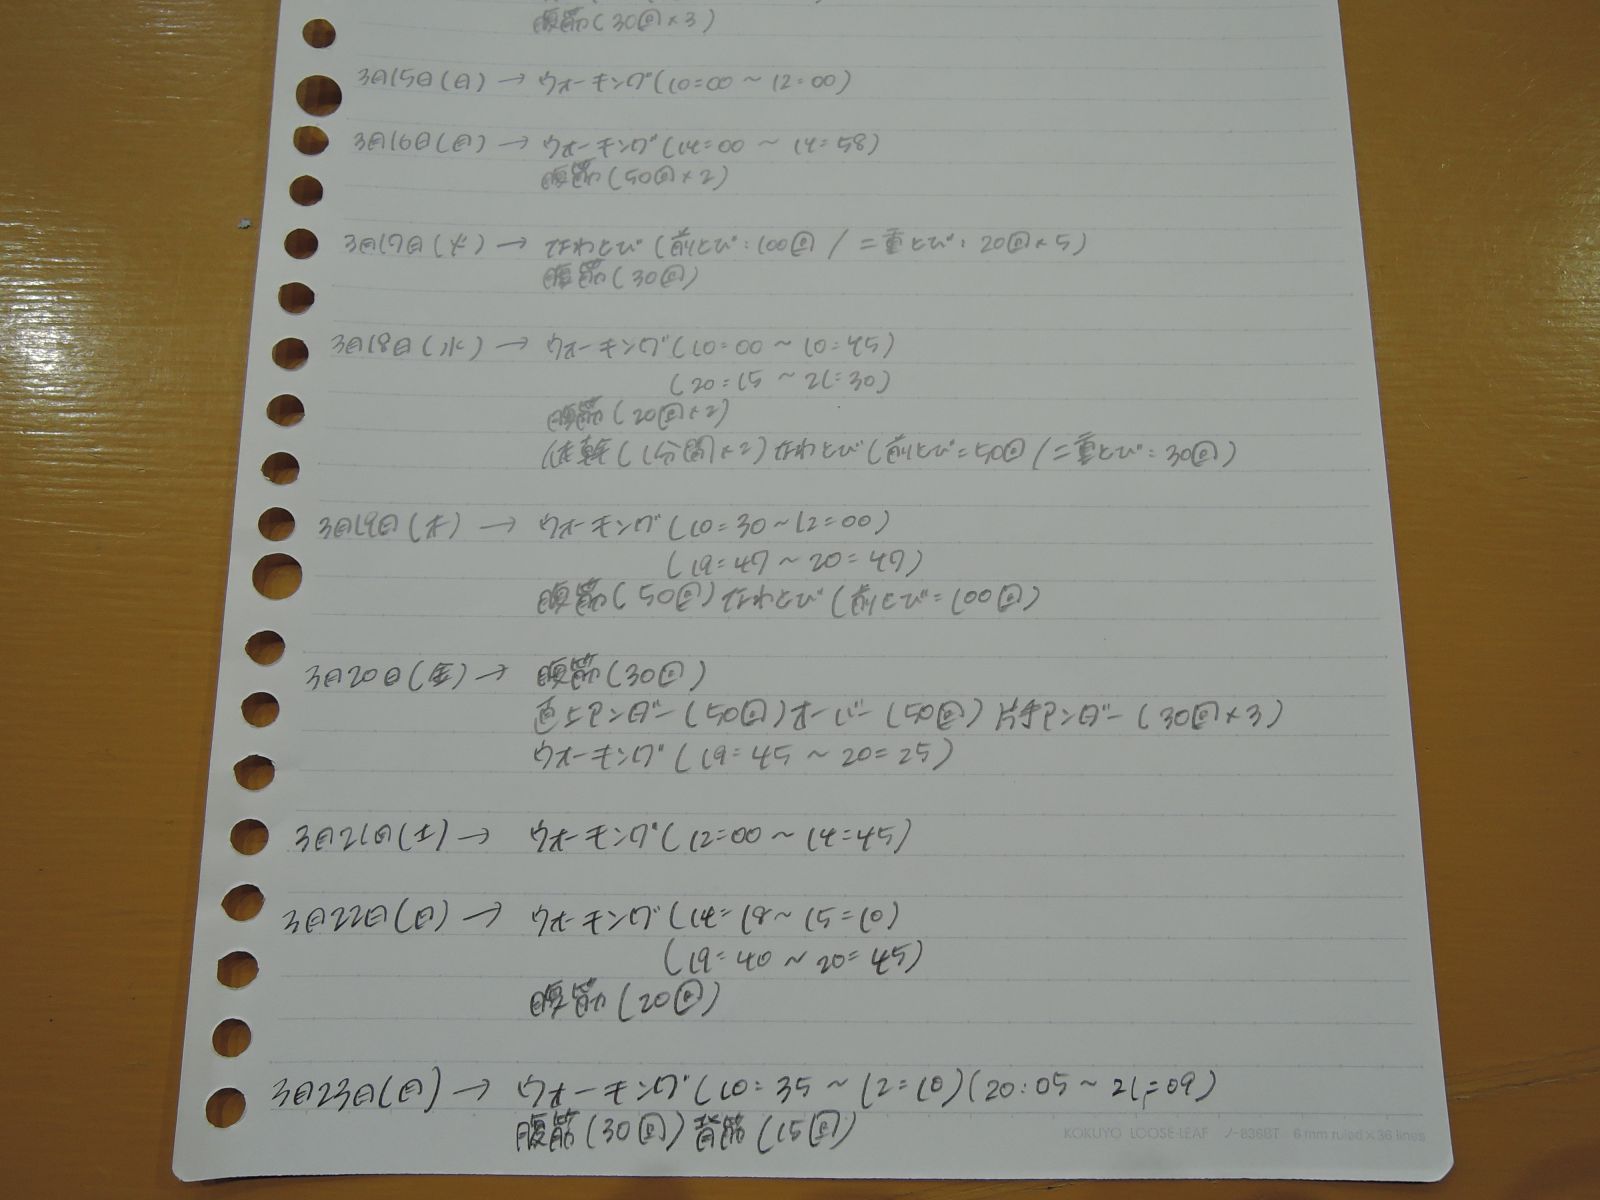 腹筋(30回×3)
3月15日(日)→ウォーキング(10:00~12:00)
3月16日(月)→ウォーキング(14:00~14:58)
腹筋(50回×2)
3月17日(火)→なわとび(前とび:100回/二重とび:20回×5)
腹筋(30回)
3月18日(水)→ウォーキング(10:00~10:45)
(20:15~21:30)
腹筋(20回×2)
体幹(1分間×2)なわとび(前とび:50回/二重とび:30回)
3月19日(木)→ウォーキング(10:30~12:00)
(19:47~20:47)
腹筋(50回)なわとび(前とび:100回)
3月20日(金)→腹筋(30回)
直上アンダー(50回)オーバー(50回)片手アンダー(30回×3)
ウォーキング(19:45~20:25)
3月21日(土)→ウォーキング(12:00~14:45)
3月22日(日)→ウォーキング(14:18~15:10)
(19:40~20:45)
腹筋(20回)
3月23日(月)→ウォーキング(10:35~12:10)(20:05~21:09)
腹筋(30回)背筋(15回)
KOKUYO LOOSE-LEAF ノ-836BT 6mm ruled×36 lines